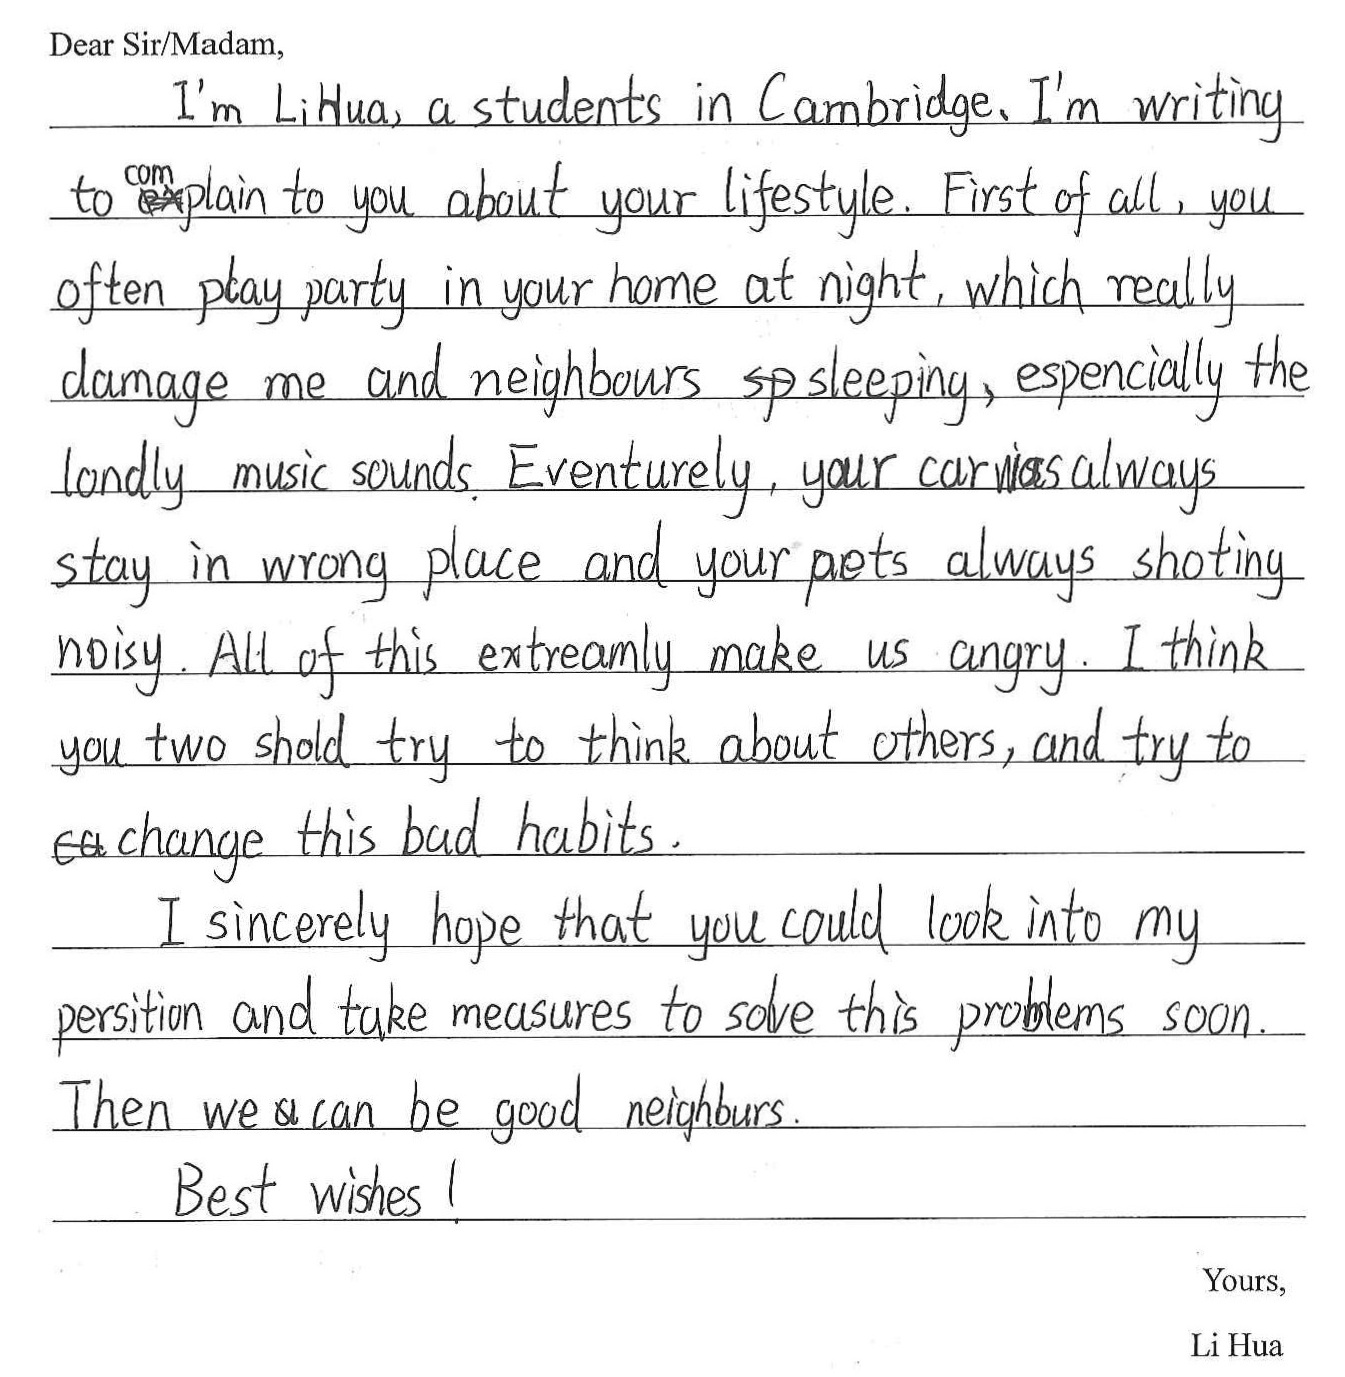 Dear Sir/Madam,
I'm LiHua, a students in Cambridge. I'm writing
to complain to you about your lifestyle. First of all, you
often play party in your home at night, which really
damage me and neighbours sleeping, espencially the
londly music sounds. Eventurely, your car always
stay in wrong place and your pets always shoting
noisy. All of this extreamly make us angry. I think
you two shold try to think about others, and try to
change this bad habits.
I sincerely hope that you could look into my
persition and take measures to solve this problems soon.
Then we can be good neighburs.
Best wishes!
Yours,
Li Hua